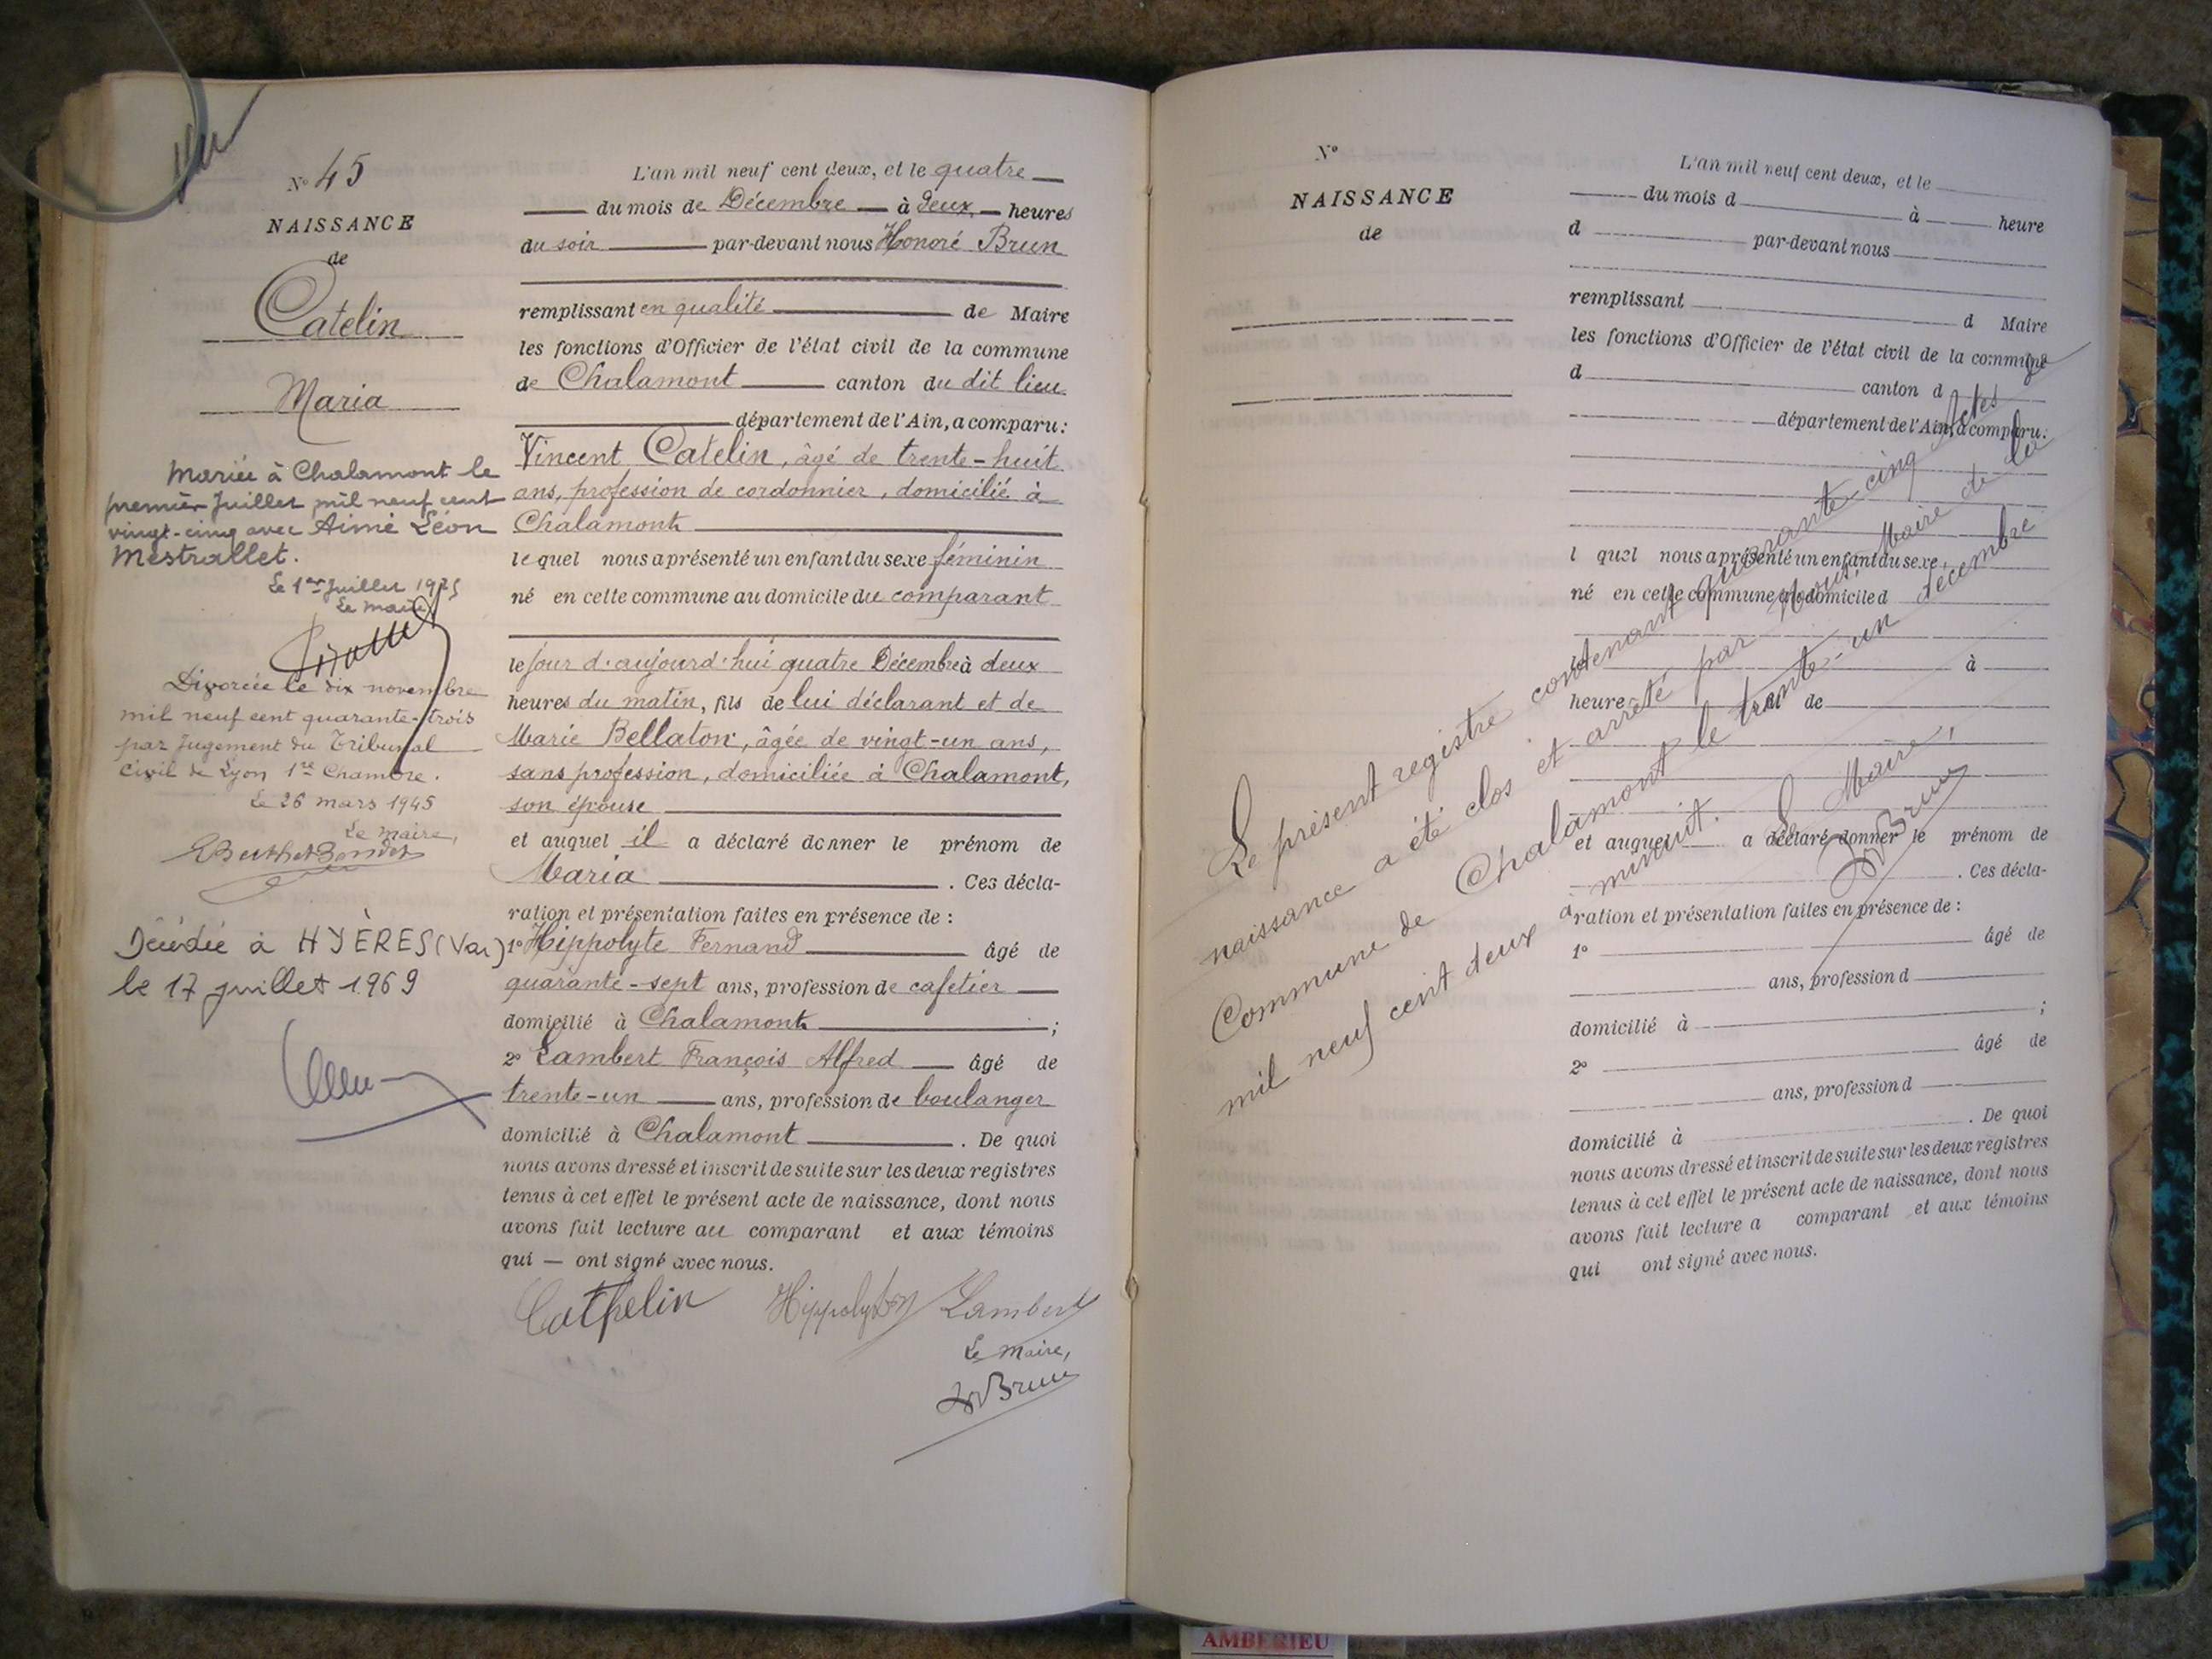 N° 45
NAISSANCE
de
Catelin
Maria
Mariée à Chalamont le
premier Juillet mil neuf cent
vingt-cinq avec Aimé Léon
Mestrallet.
Le 1er Juillet 1925
Le maire
Divorcée le dix novembre
mil neuf cent quarante-trois
par Jugement du Tribunal
Civil de Lyon 1re Chambre.
Le 26 mars 1945
Le maire,
Décédée à HYÈRES (Var)
le 17 juillet 1969
L'an mil neuf cent deux, et le quatre
du mois de Décembre à deux heures
du soir par-devant nous Honoré Brun
remplissant en qualité de Maire
les fonctions d'Officier de l'état civil de la commune
de Chalamont canton du dit lieu
département de l'Ain, a comparu:
Vincent Catelin, âgé de trente-huit
ans, profession de cordonnier, domicilié à
Chalamont
lequel nous a présenté un enfant du sexe féminin
né en cette commune au domicile du comparant
le jour d'aujourd'hui quatre Décembre à deux
heures du matin, fils de lui déclarant et de
Marie Bellaton, âgée de vingt-un ans,
sans profession, domiciliée à Chalamont,
son épouse
et auquel il a déclaré donner le prénom de
Maria . Ces décla-
ration et présentation faites en présence de :
1° Hippolyte Fernand âgé de
quarante-sept ans, profession de cafetier
domicilié à Chalamont ;
2° Lambert François Alfred âgé de
trente-un ans, profession de boulanger
domicilié à Chalamont . De quoi
nous avons dressé et inscrit de suite sur les deux registres
tenus à cet effet le présent acte de naissance, dont nous
avons fait lecture au comparant et aux témoins
qui — ont signé avec nous.
Cathelin Hippolyte Lambert
Le Maire,
Brun
N°
NAISSANCE
de
L'an mil neuf cent deux, et le
du mois d à heure
d par-devant nous
remplissant d Maire
les fonctions d'Officier de l'état civil de la commune
d canton d
département de l'Ain, a comparu:
l quel nous a présenté un enfant du sexe
né en cette commune au domicile d
le à
heure fil de
et auquel a déclaré donner le prénom de
. Ces décla-
ration et présentation faites en présence de :
1° âgé de
ans, profession d
domicilié à ;
2° âgé de
ans, profession d
domicilié à . De quoi
nous avons dressé et inscrit de suite sur les deux registres
tenus à cet effet le présent acte de naissance, dont nous
avons fait lecture a comparant et aux témoins
qui ont signé avec nous.
Le présent registre contenant quarante-cinq Actes de
naissance a été clos et arrêté par Nous, Maire de la
Commune de Chalamont le trente-un décembre
mil neuf cent deux à minuit.
Le Maire,
Brun
AMBERIEU